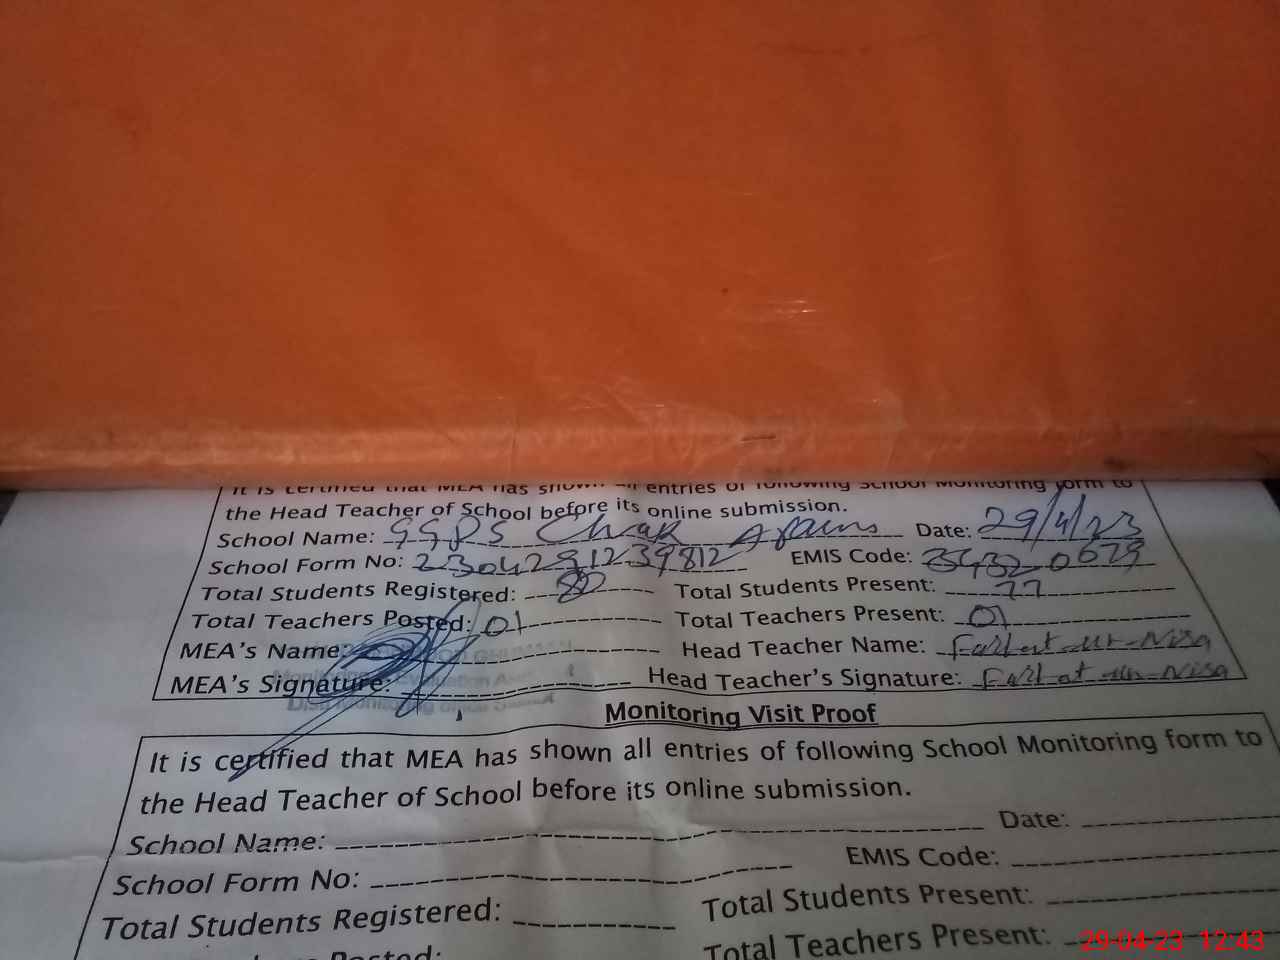 It is certified that MEA has shown all entries of following School Monitoring form to
the Head Teacher of School before its online submission.
School Name: GGPS Chak Date: 29/4/23
School Form No: 2304291239812 EMIS Code: 34320679
Total Students Registered: Total Students Present: 77
Total Teachers Posted: 01 Total Teachers Present: 01
MEA's Name: Head Teacher Name: Farhat-ur-Nisa
MEA's Signature: Head Teacher's Signature: Farhat-ur-Nisa
Monitoring Visit Proof
It is certified that MEA has shown all entries of following School Monitoring form to
the Head Teacher of School before its online submission.
School Name: Date:
School Form No: EMIS Code:
Total Students Registered: Total Students Present:
Posted: Total Teachers Present:
29-04-23 12:43